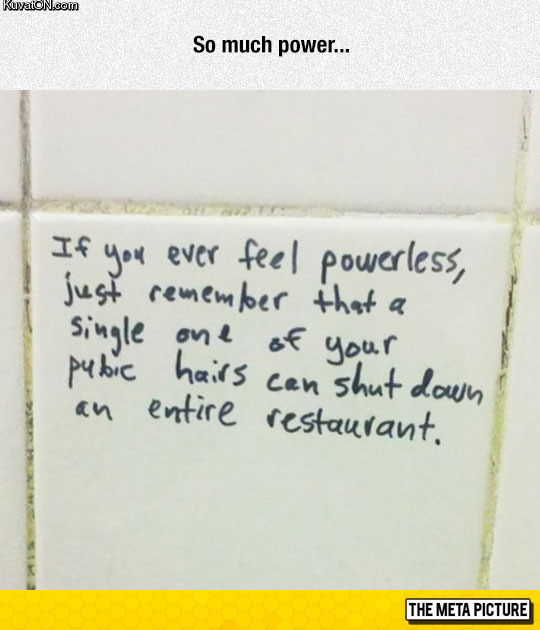 KuvatON.com
So much power...
If you ever feel powerless,
just remember that a
single one of your
pubic hairs can shut down
an entire restaurant.
THE META PICTURE